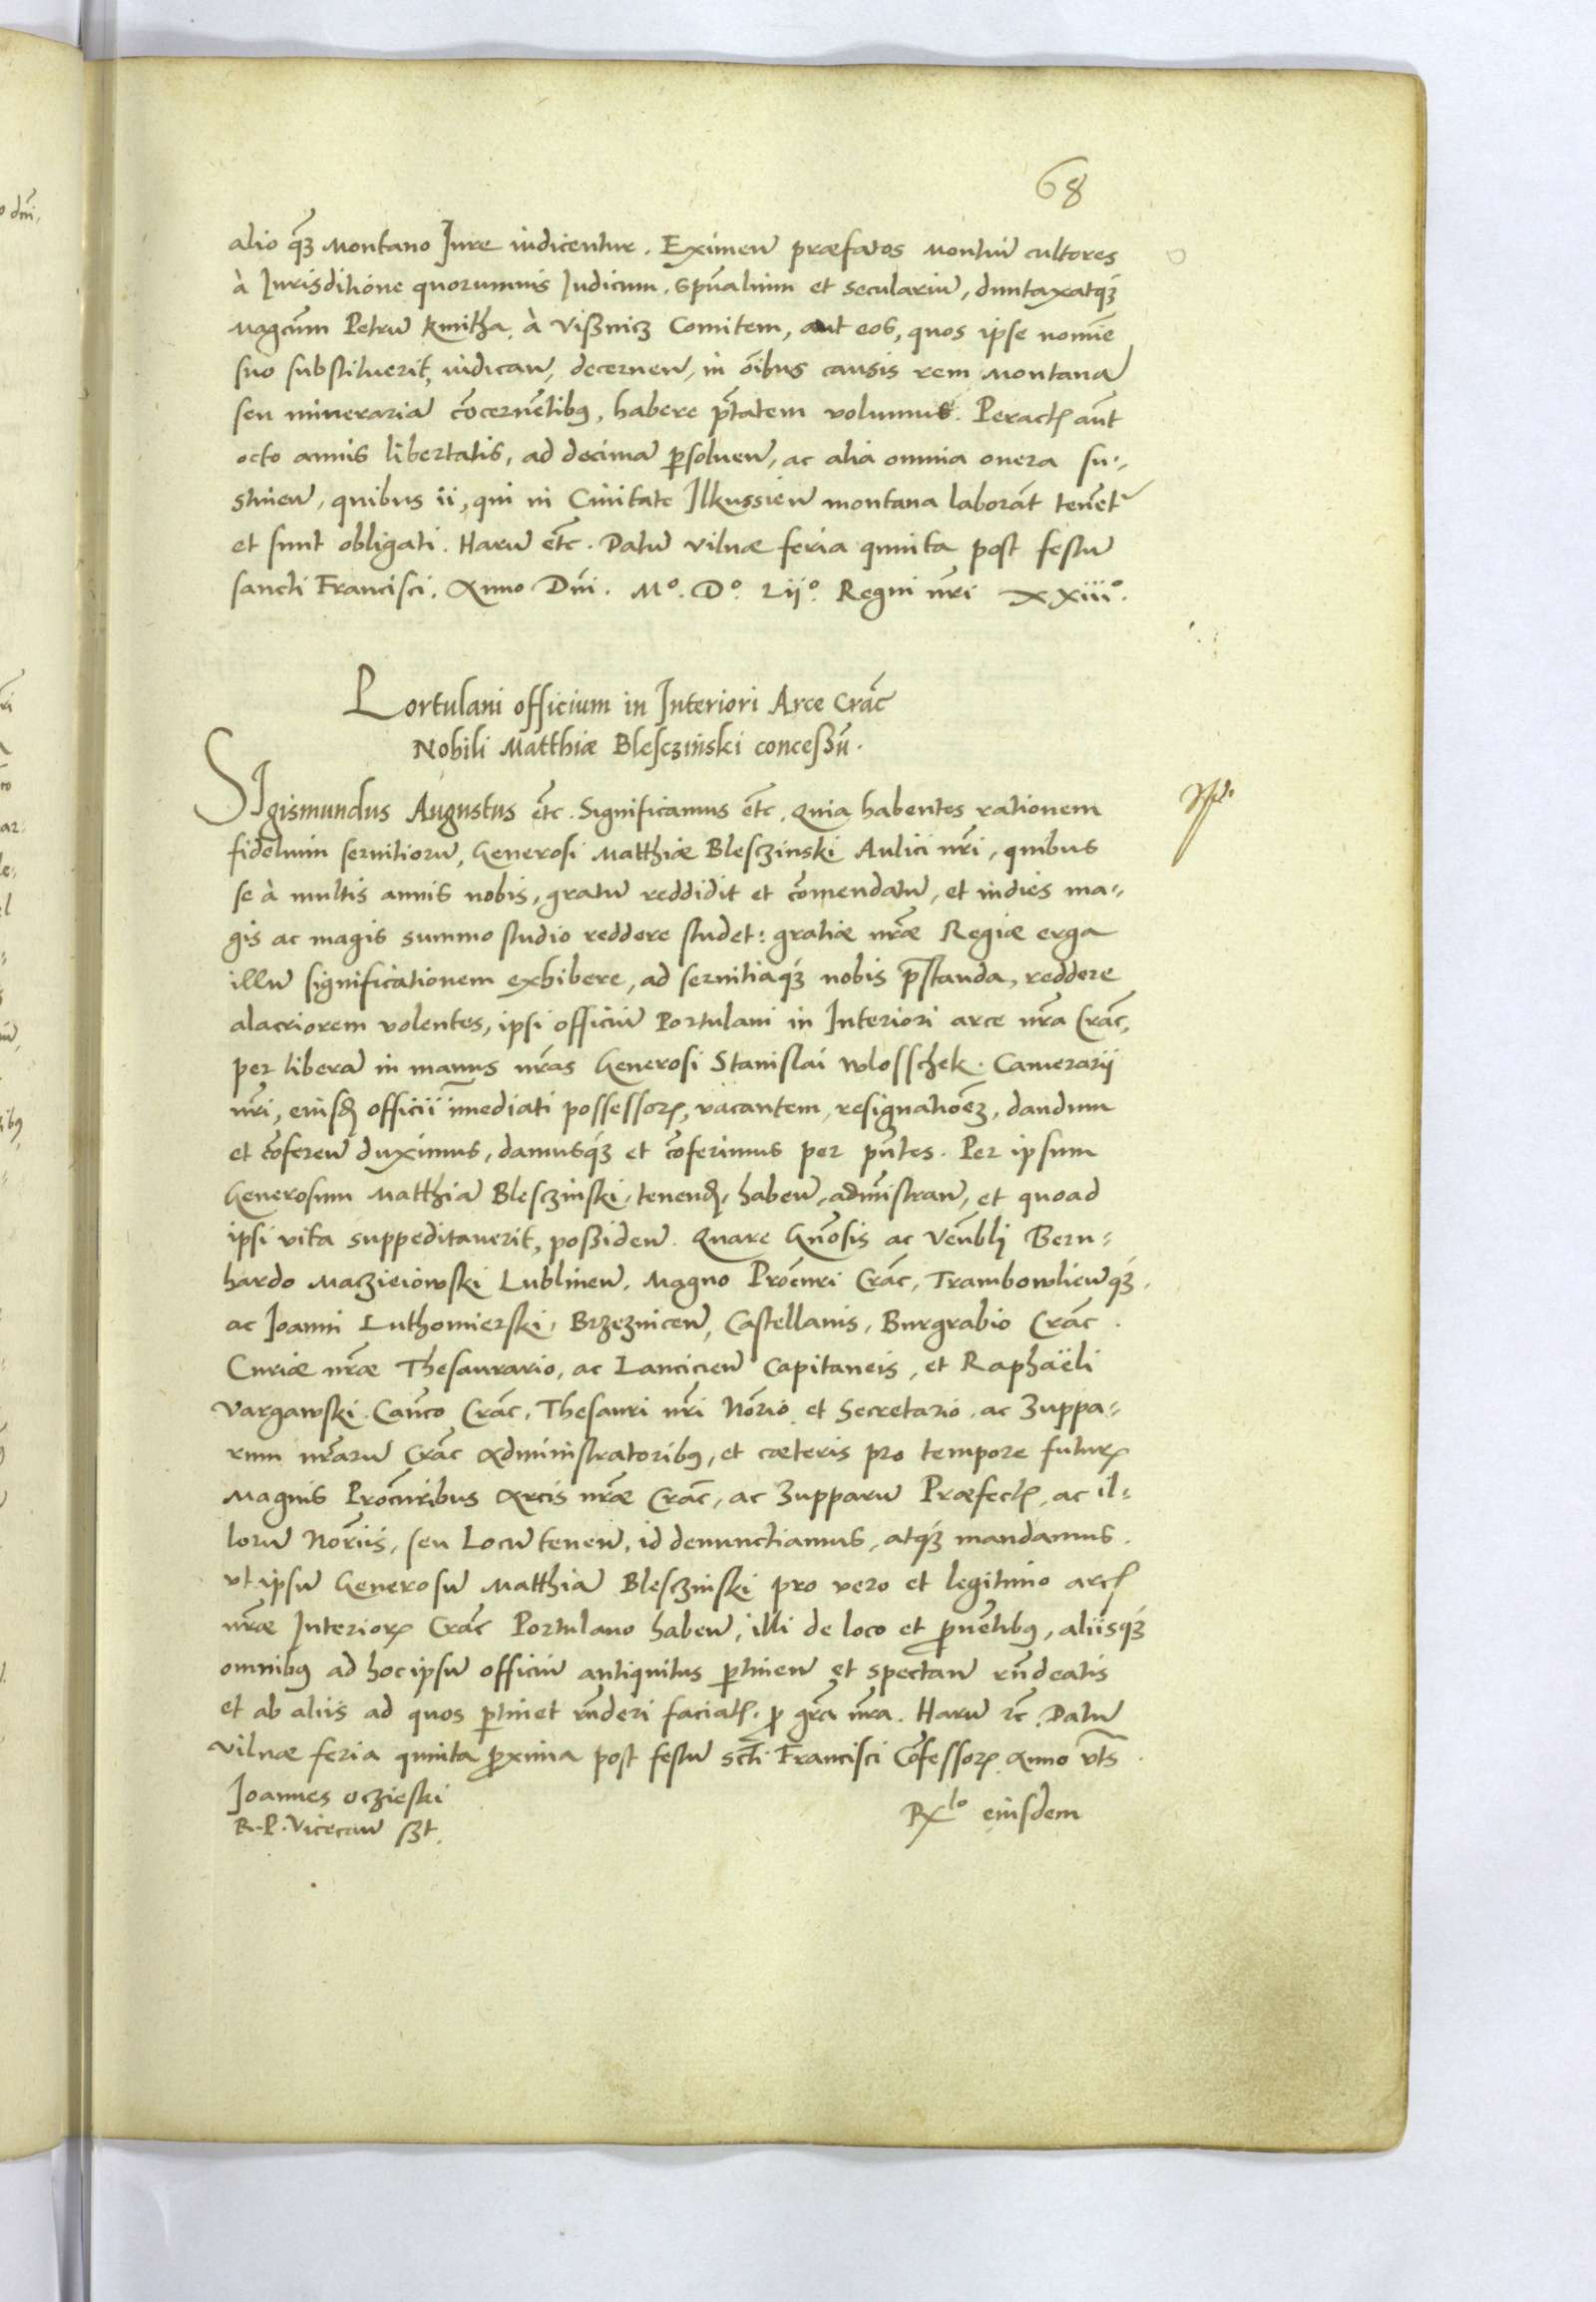 68
alio q̃ʒ Montano Jure iudicentur. Eximen̄ præfatos Montiū cultores
à Jurisditione quorumuis Judicum. Spūalium et seculariū, duntaxatqʒ́
Magcūm Petrū Kmitha, à Vißnicʒ Comitem, aut eos, quos ipse nomīe
suo substituerit, iudican̄, decernen̄, in oībus causis rem Montanā
seu minerariā c̄ocernētibꝰ, habere p̄tatem volumus. Peractꝭ aūt
octo annis libertatis, ad decimā ꝑsoluen̄, ac alia omnia onera su-
stinen̄, quibus ii, qui in Ciuitate Ilkussien̄ montana laborāt tenēt
et sunt obligati. Harū etc̄. Datū Vilnæ feria quinta post festū
sancti Francisci. Anno Dn̄i. Mº. Dº. Lijº. Regni nr̄i XXiiiº.
Portulani officium in Interiori Arce Crac̄
Nobili Matthiæ Blesczinski conceßū.
SIgismundus Augustus etc̄. Significamus etc̄. Quia habentes rationem
fidelium seruitiorū, Generosi Matthiæ Blesczinski Aulici nr̄i, quibus
se à multis annis nobis, gratū reddidit et c̄omendatū, et indies ma-
gis ac magis summo studio reddere studet: gratiæ nr̄æ Regiæ erga
illū significationem exhibere, ad seruitiaqʒ́ nobis p̄standa, reddere
alacriorem volentes, ipsi officiū Portulani in Interiori arce nr̄a Crac̄,
per liberā in manus nr̄as Generosi Stanislai Wlosschek. Camerarij
nr̄i, eiusꝺ̨ officii īmediati possessorꝭ, vacantem, resignatiōeʒ, dandum
et c̄oferen̄ duximus, damusqʒ́ et c̄oferimus per pn̄tes. Per ipsum
Generosum Matthiā Blesczinski, tenenꝺ̨, haben̄, admīstran̄, et quoad
ipsi vita suppeditauerit, poßiden̄. Quare Gn̄osis ac Ven̄blj Bern-
hardo Maczieiowski Lublinen̄. Magno Proc̄uri Crac̄, Trambowlien̄qʒ́.
ac Joanni Luthomierski, Brzeznicen̄, Castellanis, Burgrabio Crac̄.
Curiæ nr̄æ Thesaurario, ac Lancicien̄ Capitaneis, et Raphaëli
Vargawski. Can̄co Crac̄, Thesauri nr̄i Nōrio et Secretario. ac Zuppa-
rum nr̄arū Crac̄ Administratoribꝰ, et cæteris pro tempore futurꝭ
Magnis Proc̄uribus Arcis nr̄æ Crac̄, ac Zupparū Præfectꝭ, ac il-
lorū Nōriis, seu Locū tenen̄, id denunctiamus, atqʒ́ mandamus.
vt ipsū Generosū Matthiā Blesczinski pro vero et legitimo arcꝭ
nr̄æ Interiorꝭ Crac̄ Portulano haben̄, illi de loco et ꝓuētibꝰ, aliisqʒ́
omnibꝰ ad hoc ipsū officiū antiquitus ꝑtinen̄ et spectan̄ rn̄deatis
et ab aliis ad quos ꝑtinet rn̄deri faciatꝭ. ꝓ gr̄a nr̄a. Harū ꝛc̄. Datū
Vilnæ feria quinta ꝓxima post festū sct̄i Francisci C̄ofessorꝭ Anno vt̄s.
Joannes oczieski
R. P. Vicecan̄ sʒt.
Rx̄lo eiusdem